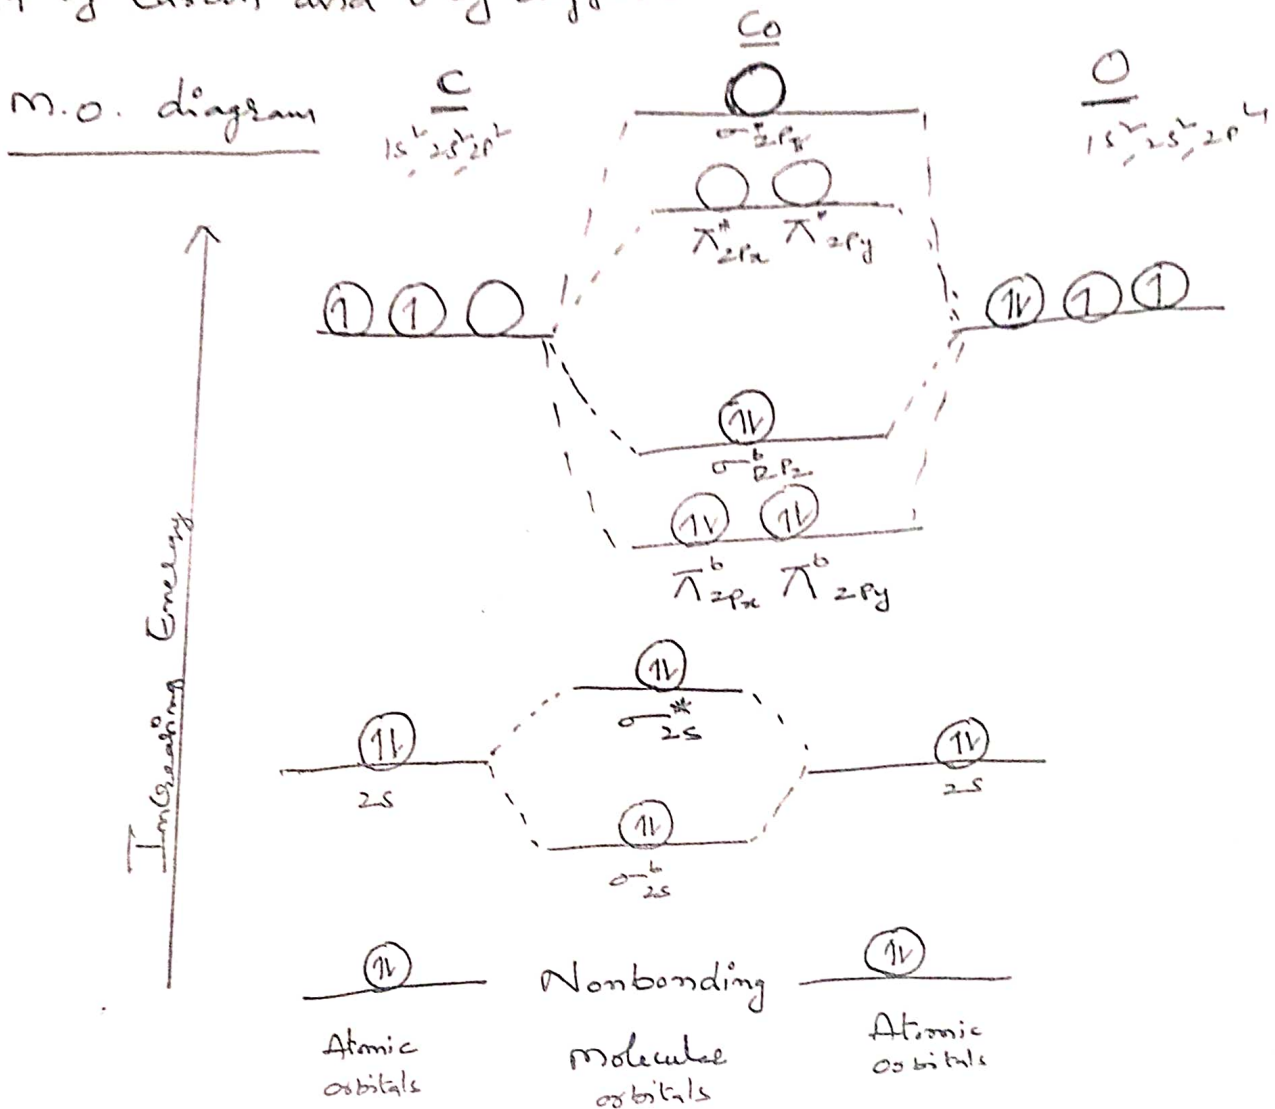 Co
C
O
M.O. diagram
1s², 2s², 2p²
1s², 2s², 2p⁴
σ*2pz
π*2px π*2py
σᵇ2pz
πᵇ2px πᵇ2py
Increasing Energy
σ*2s
2s
2s
σᵇ2s
Nonbonding
Atomic orbitals
Molecular orbitals
Atomic orbitals